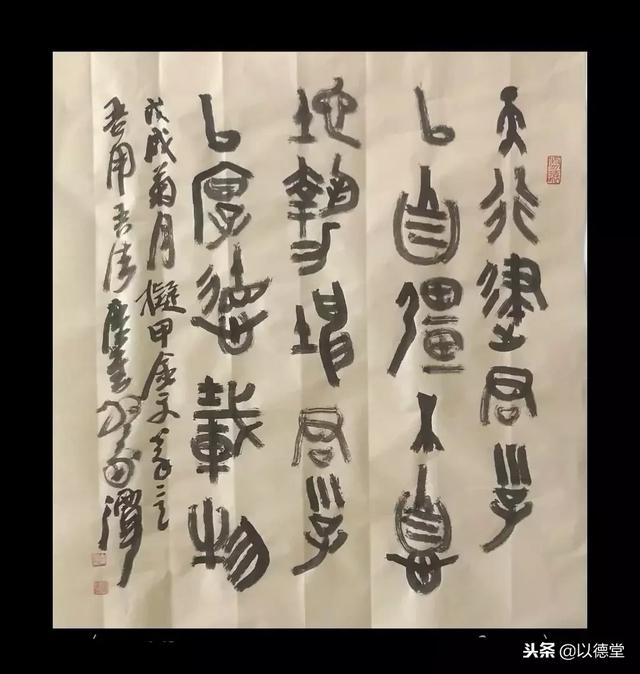 天行健君子
以自彊不息
地勢坤君子
以厚德載物
戊戌菊月擬甲金文
吾用吾法
头条 @以德堂